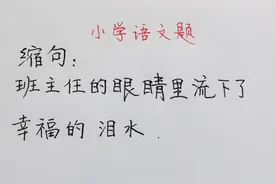 小学语文题
缩句:
班主任的眼睛里流下了
幸福的 泪水.